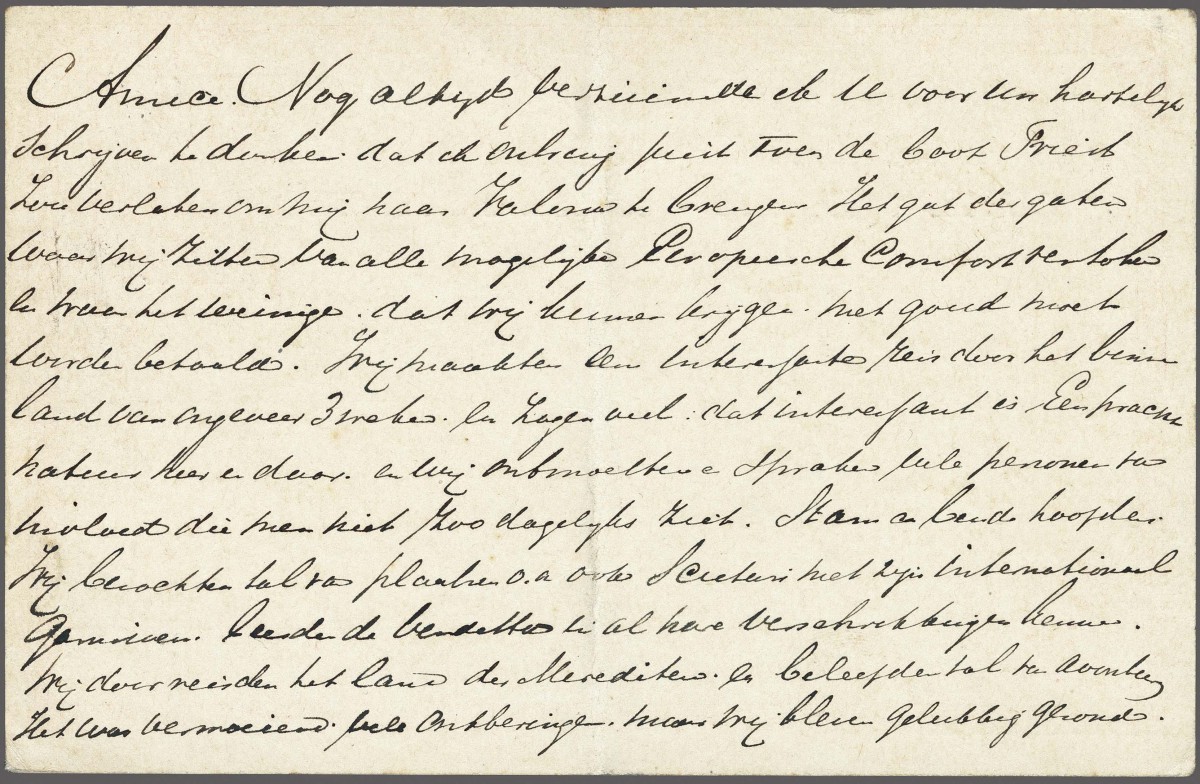 Amice. Nog altijd verzuimde ik U voor Uw hartelijk
schrijven te danken dat ik ontving juist toen de boot Triest
zou verlaten om mij naar Valona te brengen Het gat der gaten
waar wij zitten van alle mogelijke Europeesche Comfort verstoken
en waar het weinige. dat wij kunnen krijgen. met goud moet
worden betaald. Wij maakten een interessante reis door het binnen
land van ongeveer 3 weken. en zagen veel: dat interessant is Een pracht
natuur hier en daar. en wij ontmoetten en spraken vele personen van
invloed die men niet zoo dagelijks ziet. Stam en bende hoofden
Wij bezochten tal van plaatsen o.a ook Scutari met zijn internationaal
Garnizoen. leerden de Vendetta in al hare verschrikkingen kennen.
Wij doorreisden het land der Merediten. en beleefden tal van avonturen
Het was vermoeiend. vele ontberingen. maar wij bleven gelukkig gezond.